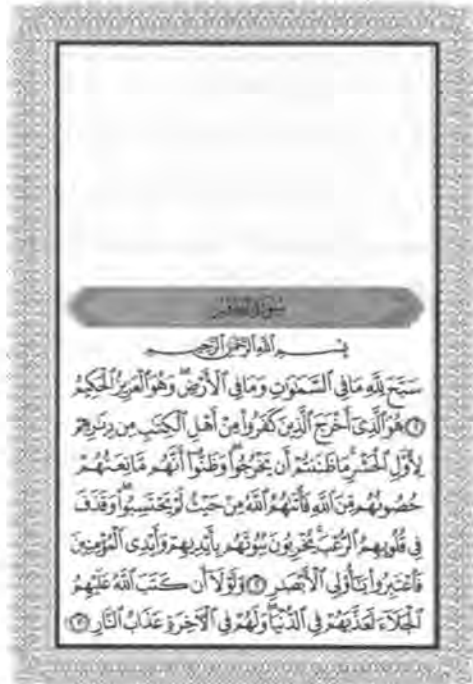 سُورَةُ الحَشْرِ
بِسْمِ ٱللَّهِ ٱلرَّحْمَٰنِ ٱلرَّحِيمِ
سَبَّحَ لِلَّهِ مَا فِي ٱلسَّمَٰوَٰتِ وَمَا فِي ٱلْأَرْضِۖ وَهُوَ ٱلْعَزِيزُ ٱلْحَكِيمُ
١ هُوَ ٱلَّذِيٓ أَخْرَجَ ٱلَّذِينَ كَفَرُوا۟ مِنْ أَهْلِ ٱلْكِتَٰبِ مِن دِيَٰرِهِمْ
لِأَوَّلِ ٱلْحَشْرِۚ مَا ظَنَنتُمْ أَن يَخْرُجُوا۟ۖ وَظَنُّوٓا۟ أَنَّهُم مَّانِعَتُهُمْ
حُصُونُهُم مِّنَ ٱللَّهِ فَأَتَىٰهُمُ ٱللَّهُ مِنْ حَيْثُ لَمْ يَحْتَسِبُوا۟ۖ وَقَذَفَ
فِي قُلُوبِهِمُ ٱلرُّعْبَۚ يُخْرِبُونَ بُيُوتَهُم بِأَيْدِيهِمْ وَأَيْدِي ٱلْمُؤْمِنِينَ
فَٱعْتَبِرُوا۟ يَٰٓأُو۟لِي ٱلْأَبْصَٰرِ ٢ وَلَوْلَآ أَن كَتَبَ ٱللَّهُ عَلَيْهِمُ
ٱلْجَلَآءَ لَعَذَّبَهُمْ فِي ٱلدُّنْيَاۖ وَلَهُمْ فِي ٱلْءَاخِرَةِ عَذَابُ ٱلنَّارِ ٣